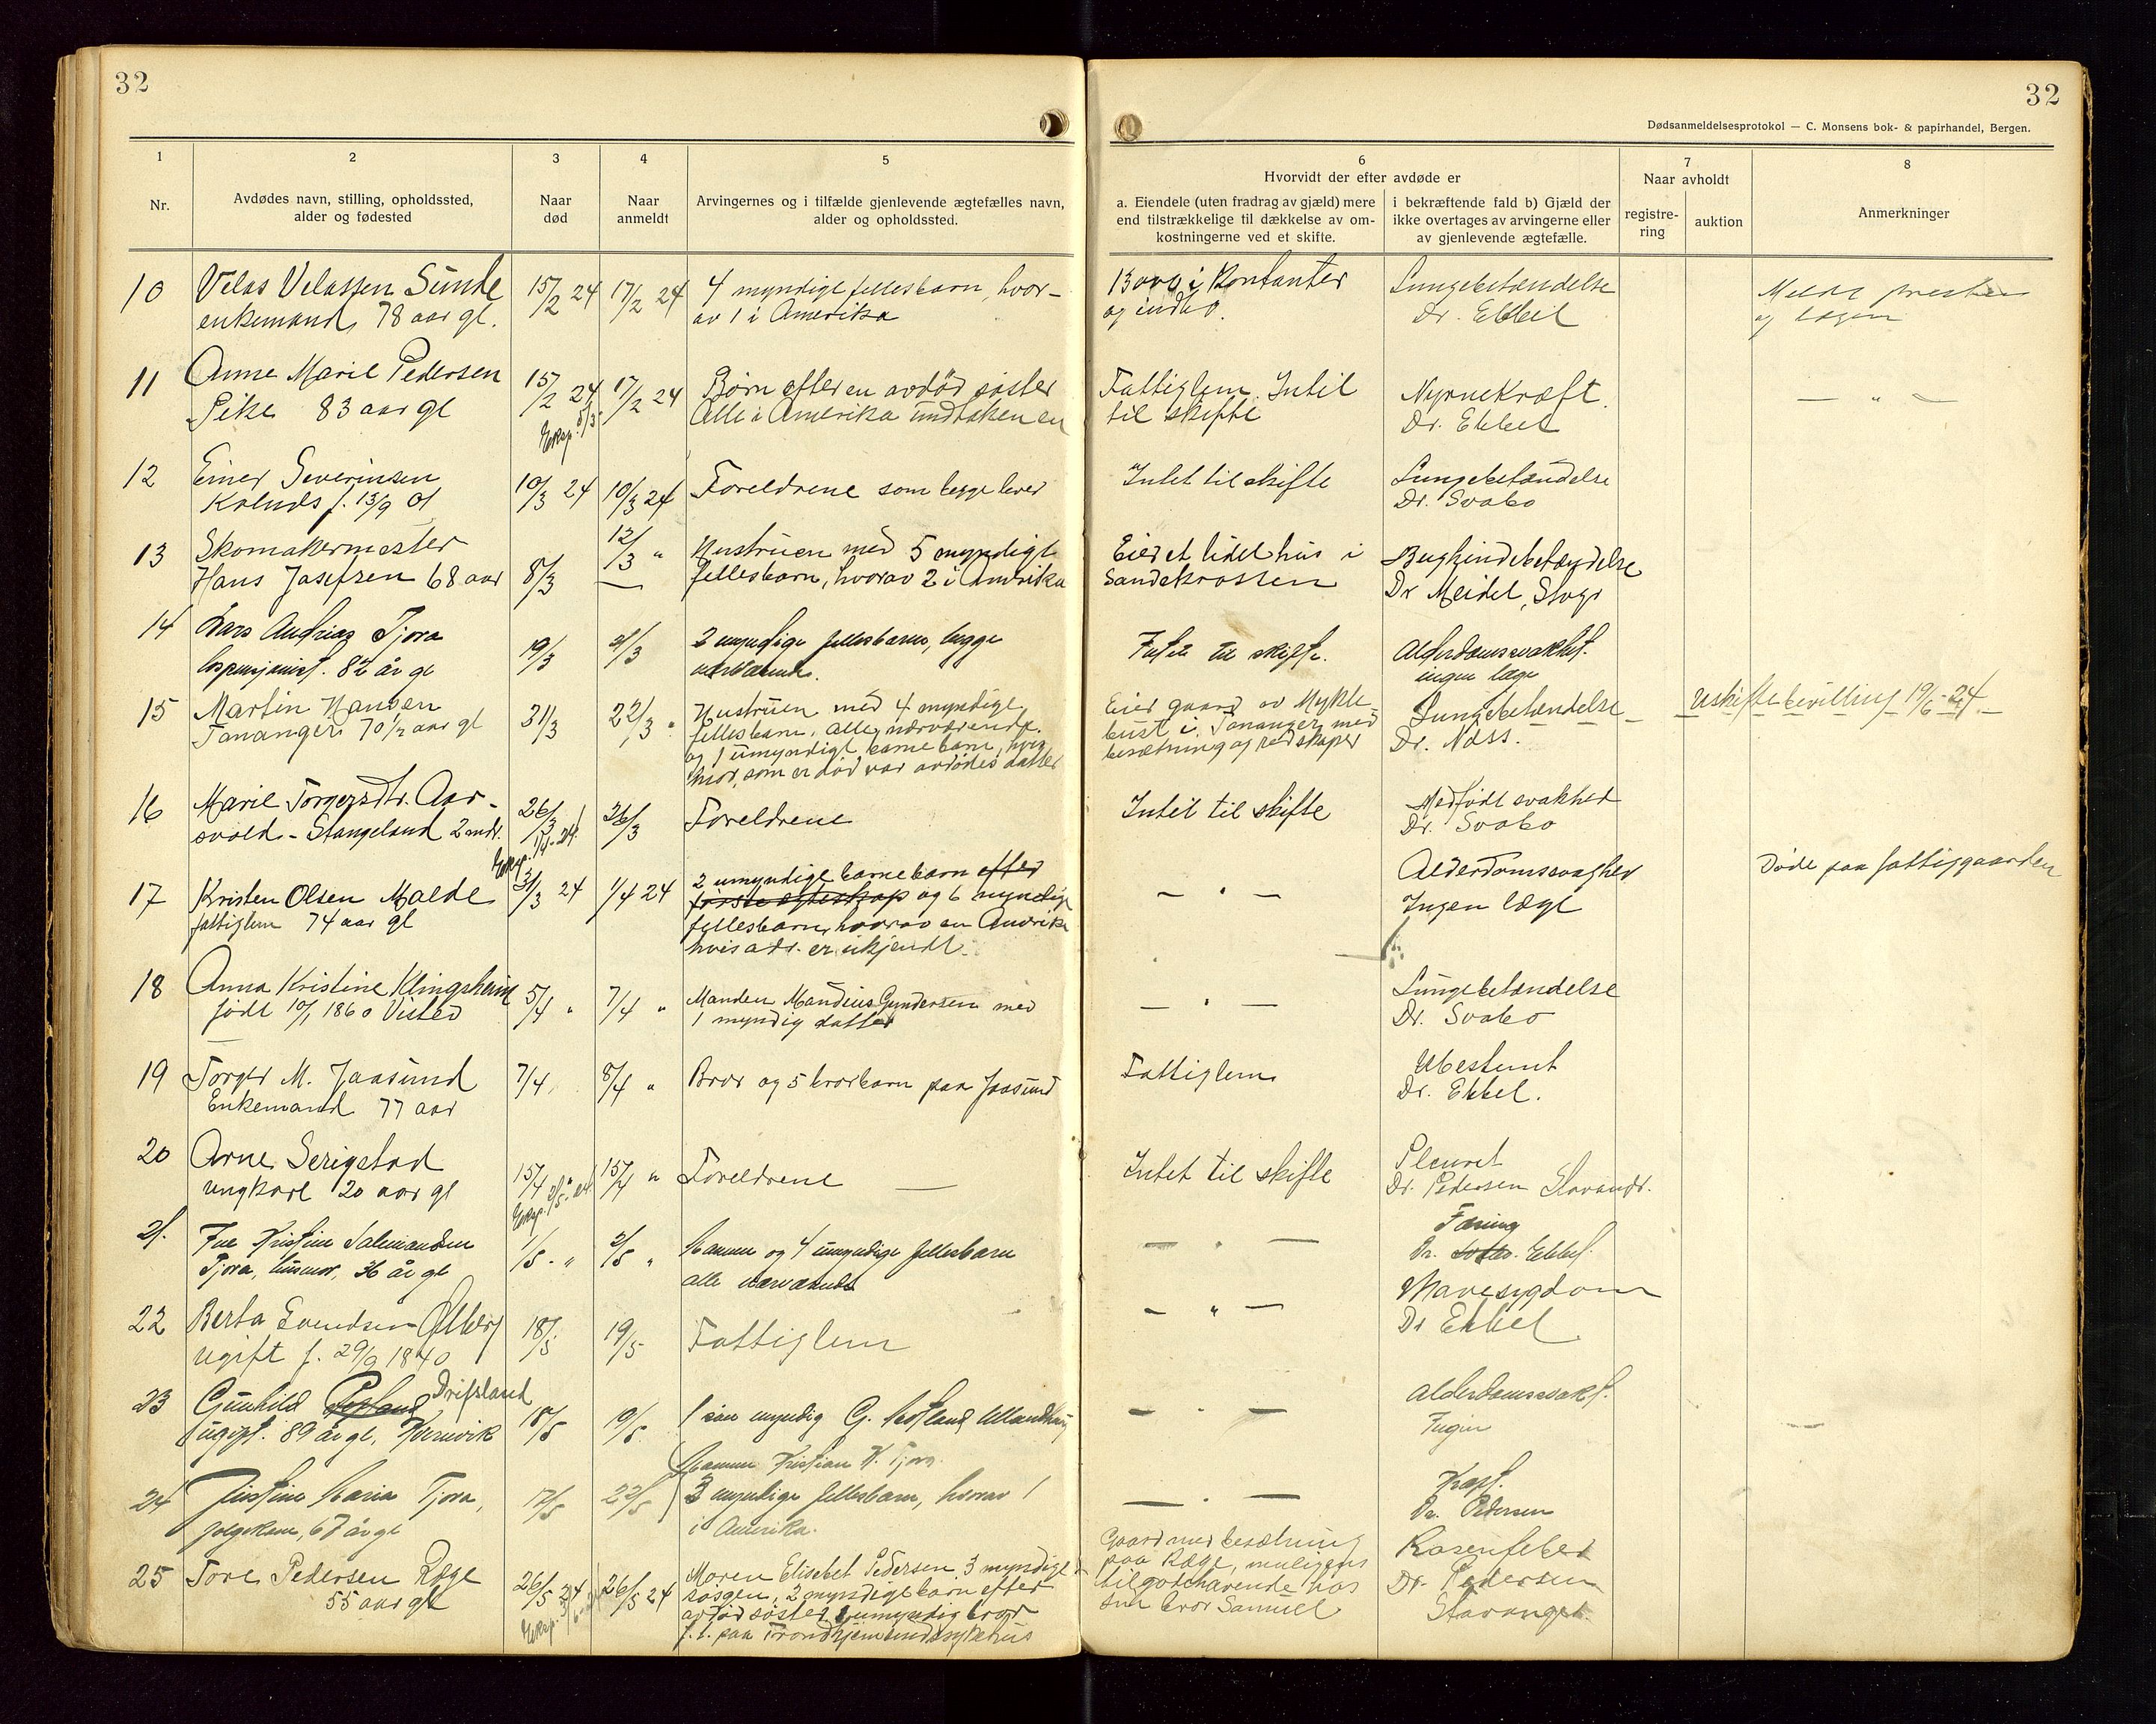 32
32
Dødsanmeldelsesprotokol — C. Monsens bok- & papirhandel, Bergen.
1
Nr.
2
Avdødes navn, stilling, opholdssted,
alder og fødested
3
Naar
død
4
Naar
anmeldt
5
Arvingernes og i tilfælde gjenlevende ægtefælles navn,
alder og opholdssted.
6
Hvorvidt der efter avdøde er
a. Eiendele (uten fradrag av gjæld) mere
end tilstrækkelige til dækkelse av om-
kostningerne ved et skifte.
i bekræftende fald b) Gjæld der
ikke overtages av arvingerne eller
av gjenlevende ægtefælle.
7
Naar avholdt
registre-
ring
auktion
8
Anmerkninger
10 Velas Velassen Sunde
enkemand, 78 aar gl.
15/2 24 17/2 24
4 myndige fellesbarn, hvor-
av 1 i Amerika
i Kontanter
og indbo.
Lungebetændelse
Dr. Ebbel
Meldt presten
og lægen
11 Anne Marie Pedersen
Pike 83 aar gl
15/2 24 17/2 24
Eksp.
Børn efter en avdød søster
Alle i Amerika undtaken en
Fattiglem. Intet
til skifte
Nyrnekræft.
Dr. Ebbel
— " —
12 Einer Severinsen
Kolnds f. 13/9 01
10/3 24 10/3 24
Foreldrene som begge lever
Intet til skifte
Lungebetændelse
Dr. Svabo
13 Skomakermester
Hans Josefsen 68 aar
8/3 12/3 "
Hustruen med 5 myndige
fellesbarn, hvorav 2 i Amerika
Eier et lidet hus i
Sandekrossen
Bughindebetændelse
Dr Meidel, Stvgr
14 Lars Andreas Tjora
82 år gl
19/3 21/3
2 myndige fellesbarn, begge
nærværende.
Intet til skifte.
Alderdomssvakhet.
ingen læge
15 Martin Hansen
Tananger 70 1/2 aar gl
31/3 22/3 "
Hustruen med 4 myndige
fellesbarn, alle nærværende.
og 1 umyndigt barnebarn, hvis
mor, som er død var avdødes datter
Eier gaard av Mykle-
bust i Tananger med
besætning og redskaper
Lungebetændelse
Dr. Næss.
Uskiftebevilling 19/6-24
16 Marie Torgersdtr. Aar-
svold - Stangeland 2 mdr.
26/3 26/3
Eksp. 1/4-24
Foreldrene
Intet til skifte
Medfødt svakhed
Dr. Svabo
17 Kristen Olsen Malde
fattiglem 74 aar gl
31/3 24 1/4 24
2 umyndige barnebarn efter
første ægteskap og 6 myndige
fellesbarn, hvorav en Amerika
hvis adr. er ukjendt.
— " —
Alderdomssvaghed
Ingen læge
Døde paa fattiggaarden
18 Anna Kristine Klingsheim
født 10/1 1860 Visted
5/4 " 7/4 "
Manden Mandius Gundersen med
1 myndig datter
— " —
Lungebetændelse
Dr. Svabo
19 Torger M. Jaasund
Enkemand 77 aar
7/4 8/4 "
Bror og 5 brorbarn paa Jaasund
Fattiglem
Ubestemt
Dr. Ebbel.
20 Arne Serigstad
ungkarl 20 aar gl
15/4 " 15/4 "
Eksp. 2/5-24
Foreldrene —
Intet til skifte
Pleurit
Dr. Pedersen Stavangr.
21. Fru Kristine Salemonsen
Tjora, husmor, 36 år gl
1/5 - " 2/5 "
Mannen og 4 umyndige fellesbarn
alle nærværende
— " —
Tæring
Dr. Ebbel.
22 Berta Svendsen Ølberg
ugift f. 29/9 1840
18/5 19/5
Fattiglem
— " —
Mavesygdom
Dr Ebbel
23 Gunhild Drifsland
ugift. 89 år gl, Kvernvik
18/5 19/5
1 søn myndig G. Hofland Ullandhaug
— " —
Alderdomssvakh.
Ingen
24 Justine Maria Tjora,
67 år gl
17/5 22/5
Mannen Kristian K. Tjora
3 myndige fellesbarn, hvorav 1
i Amerika.
— " —
Kræft.
Dr. Pedersen
25 Tore Pedersen Ræge
55 aar gl
26/5 24 26/5 24
Eksp.
Moren Elisebet Pedersen. 3 myndige
søsgen, 2 myndige barn efter
avdød søster, 1 umyndig bror
f. t. paa Trondhjem sindssykehus
Gaard med besætning
paa Ræge, muligens
tilgodehavende hos
sin bror Samuel
Rosenfeber
Dr. Pedersen
Stavanger.